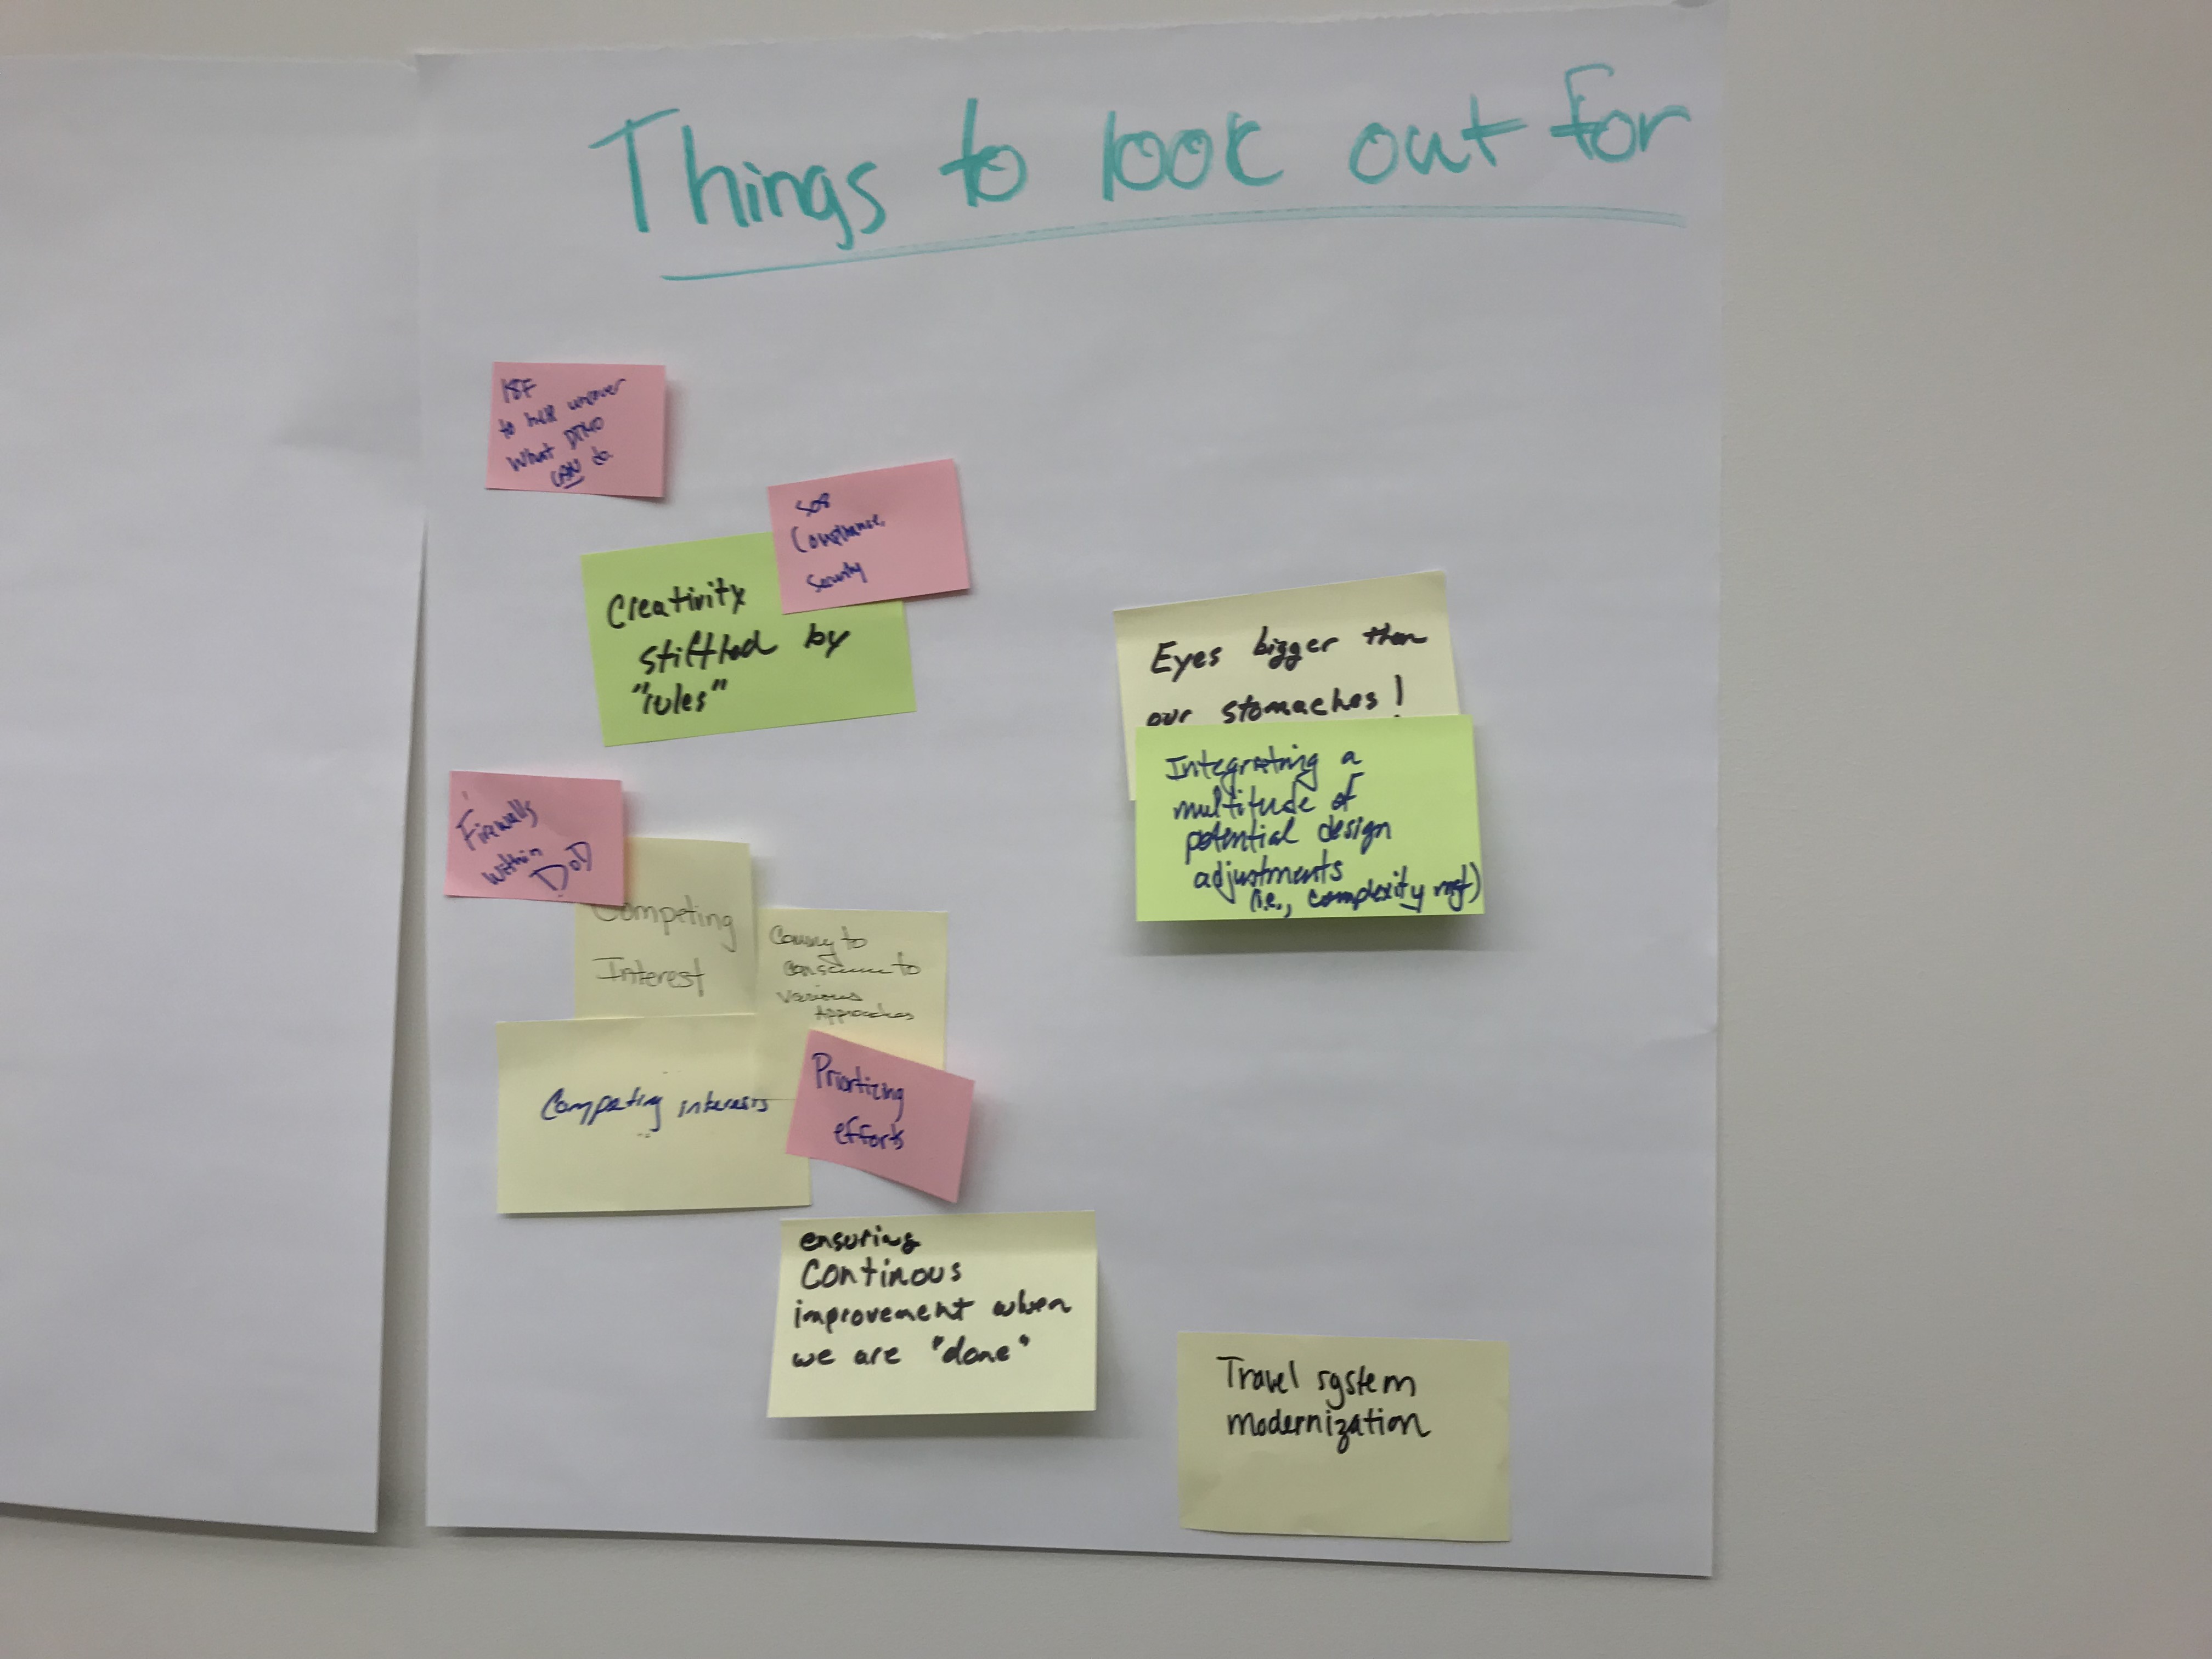 Things to look out for
18F
to help uncover
What DTMO
CAN do
508
Compliance,
Security
Creativity
stiftled by
"rules"
Eyes bigger than
our stomaches!
Integrating a
multitude of
potential design
adjustments
(i.e., complexity mgt)
Firewalls
within
DoD
Competing
Interest
Coming to
to
Various
Approaches
Competing interests
Prioritizing
efforts
ensuring
Continous
improvement when
we are "done"
Travel system
modernization